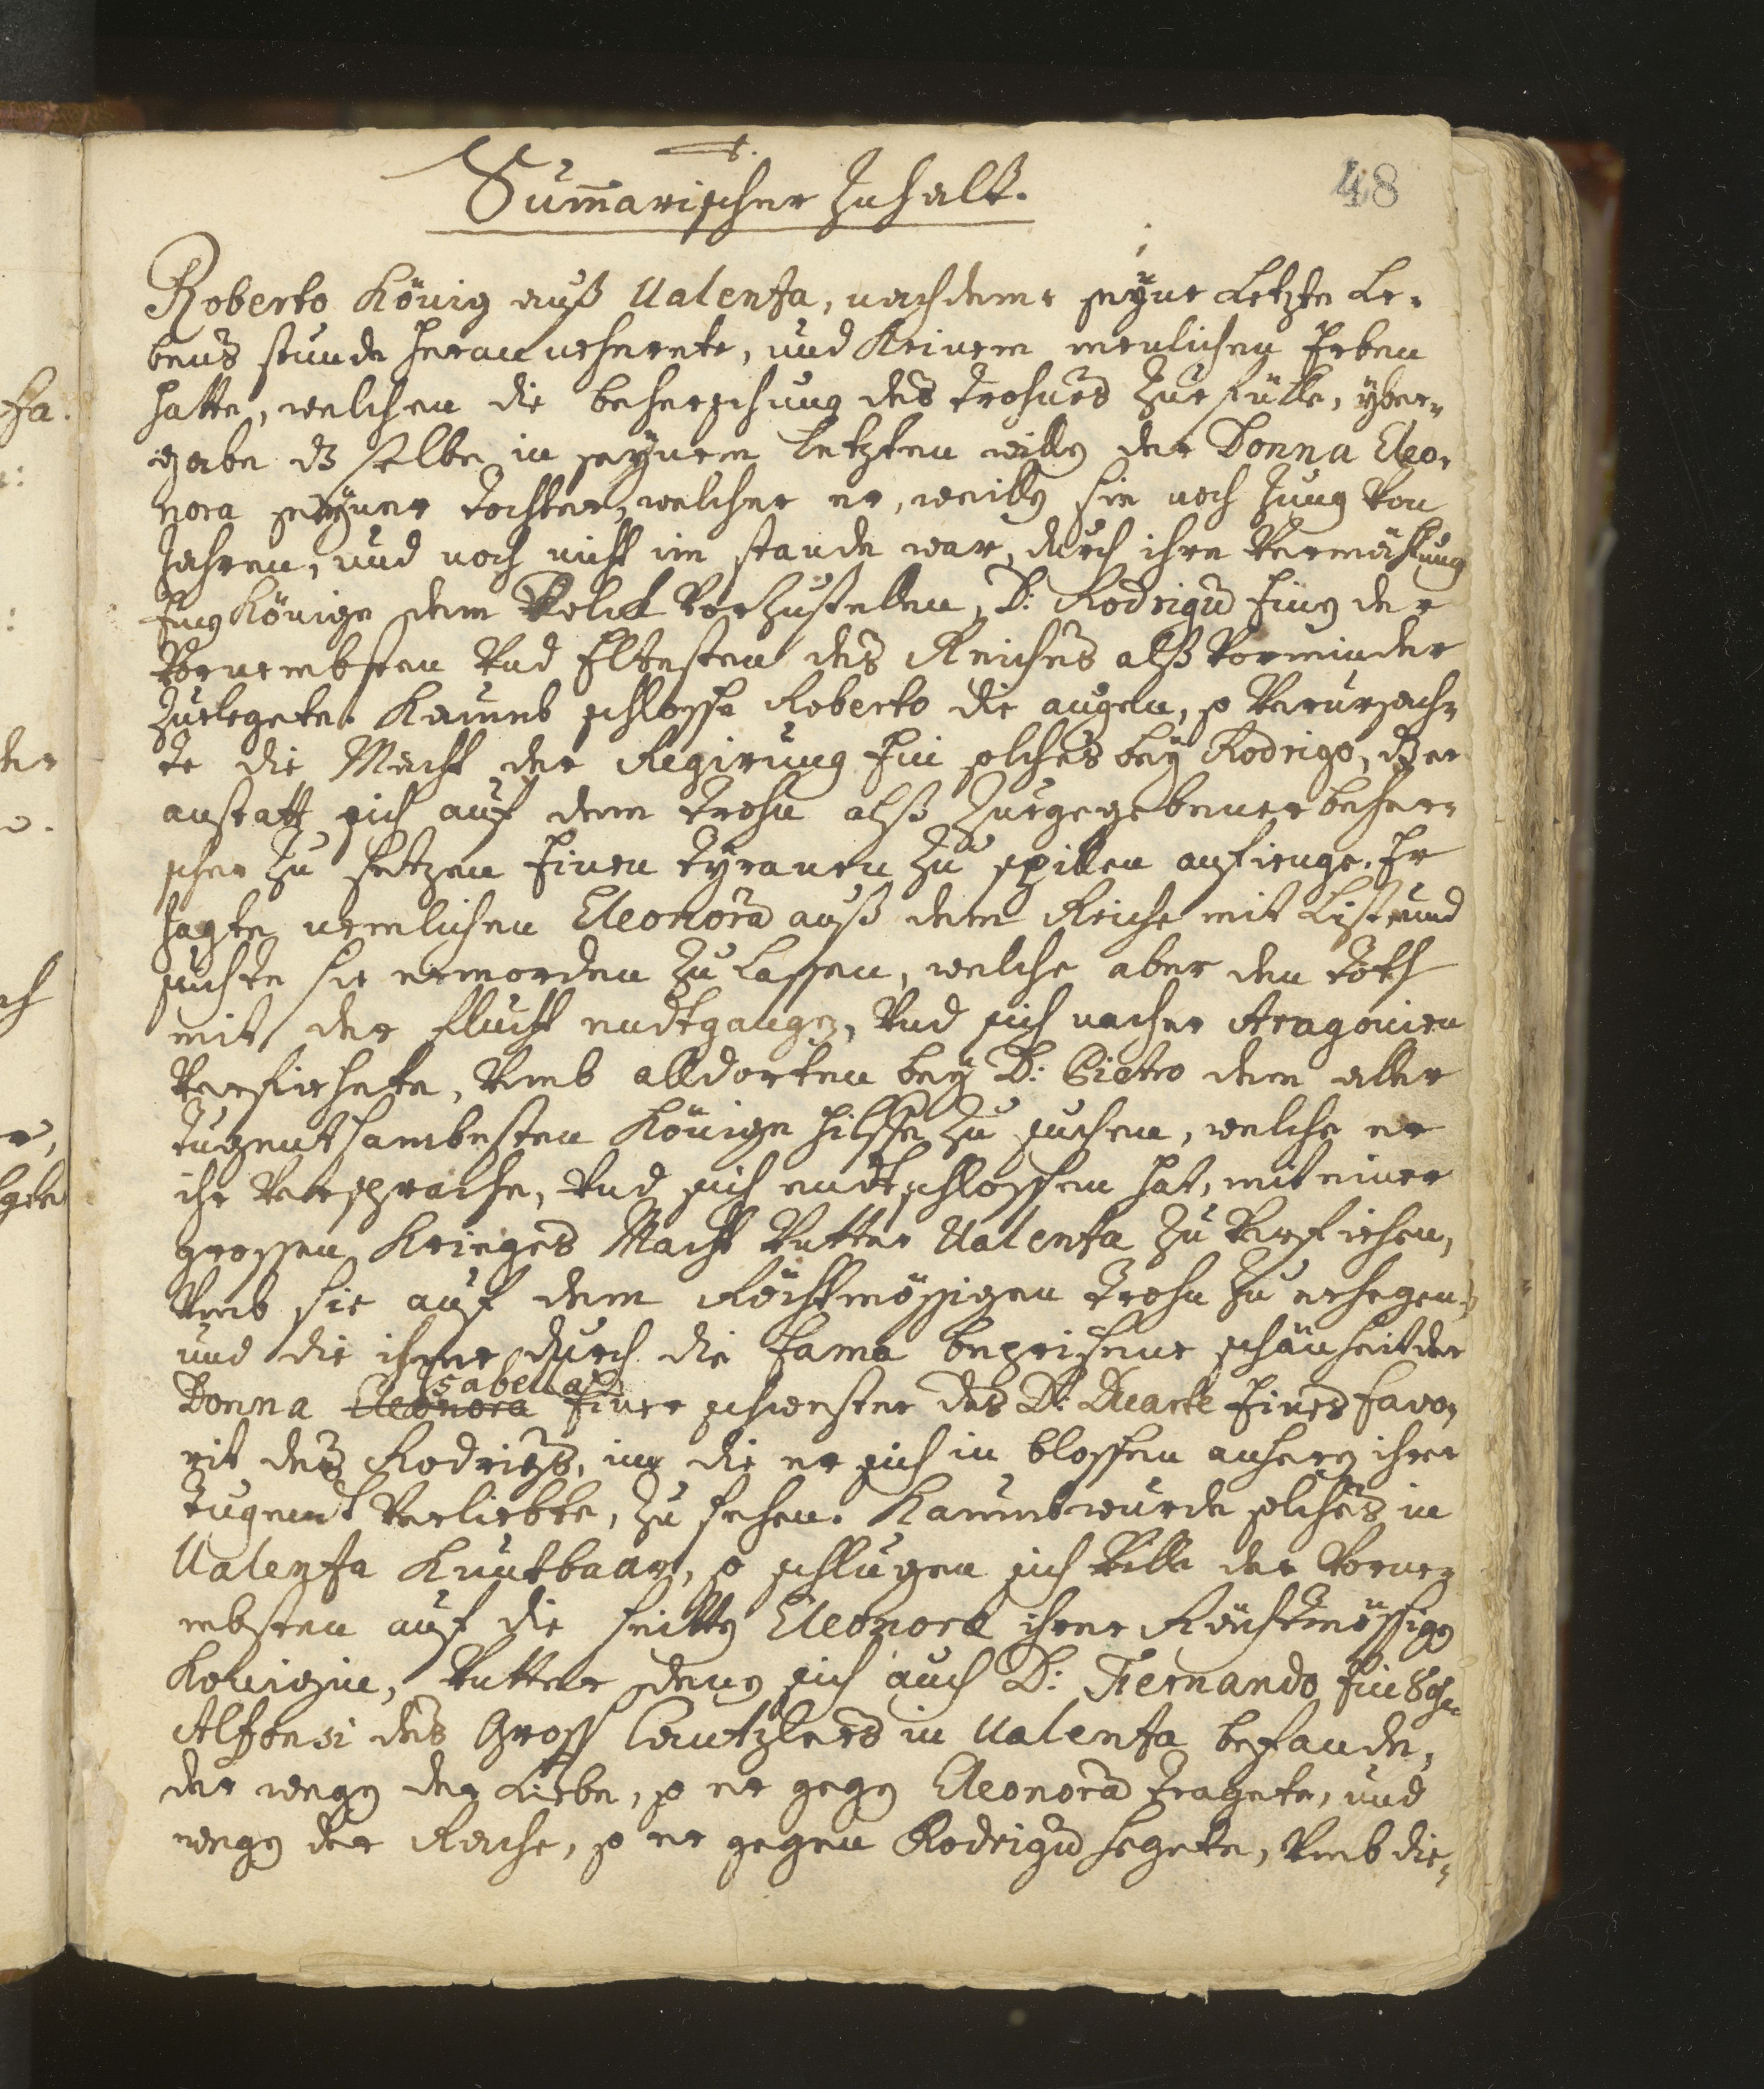 48
Sum̄arischer Inhalt.
Roberto König auß Valenza, nachdeme seyne letzte le-
bens stunde herannehrete, und keinen menlichen Erben
hatte, welchen die beherschung des trohnes zue fülle, yber-
gabe dß selbe in seynem letzten willen der Donna Eleo-
nora seyner tochter, welcher er, weillen sie noch Jung von
Jahren, und noch nicht im stande war, durch ihre Vermählung
Einen Könige dem Volck vorzustellen, D: Rodrigo Einen der
Vornembsten und Eltesten des Reiches alß Vorminder
zuelegete. Kaumb schlosse Roberto die augen, so verursach-
te die Macht der Regirung Ein solches bey Rodrigo, dß er
anstatt sich auf dem trohn alß zuegegebener beher-
scher zu setzen Einen tyranen zu spillen anfienge. Er
Jagte nemlichen Eleonora auß dem Reiche mit List und
suchte sie ermorden zu lassen, welche aber den toth
mit der flucht endtgangen, Und sich nacher Aragonien
verfiehete, Umb alldorten bey D: Pietro dem aller
tugentsambesten Könige hilffe zu suchen, welche er
ihr versprache, Und sich endtschlossen hat, mit einer
grossen Krieges Macht Vntter Valenza zu verfiehen,
Umb sie auf dem Röchtmössigen trohn zu erhegen,
und die ihme durch die Fama beprisene schänheit der
Donna Eleonora Isabella Einer schwester des D: Duarte Eines favo-
rit des Rodrigo, in die er sich in blossen anheren ihrer
tugendt verliebte, zu sehen. Kaumb wurde solches in
Valenza Kuntbaar, so schlugen sich Ville der Vorne-
mbsten auf die seitten Eleonora ihrer Röchtmössigen
Königin, Vntter denen sich auch D: Fernando Ein Sohn
Alfonsi des Gross Cantzlers in Valenza befande,
der wegen der Liebe, so er gegen Eleonora tragete, und
wegen der Rache, so er gegen Rodrigo hegete, Umb die-